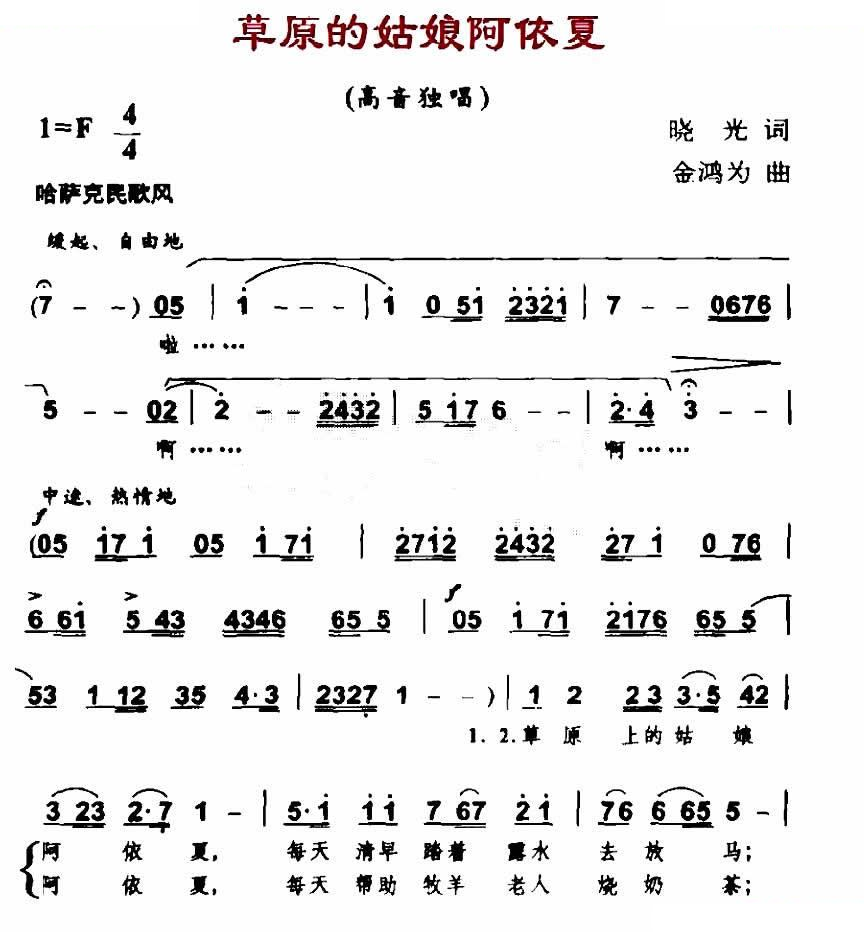 草原的姑娘阿依夏
(高音独唱)
1=F 4/4
晓 光 词
金鸿为 曲
哈萨克民歌风
缓起、自由地
(7 - -) 05 | i - - - | i 0 5i 2321 | 7 - - 0676 |
啦……
5 - - 02 | 2 - - 2432 | 5 i7 6 - - | 2·4 3 - - |
啊…… 啊……
中速、热情地
f
(05 i7 i 05 i 7i | 27i2 2432 27 i 0 76 |
> > f
6 6i 5 43 4346 65 5 | 05 i 7i 2i76 65 5 |
53 1 12 35 4·3 | 2327 1 - -) | 1 2 23 3·5 42 |
1. 2.草 原 上的 姑 娘
3 23 2·7 1 - | 5·i ii 7 67 2i | 76 6 65 5 - |
阿 依 夏, 每天 清早 踏着 露水 去 放 马;
阿 依 夏, 每天 帮助 牧羊 老人 烧 奶 茶;